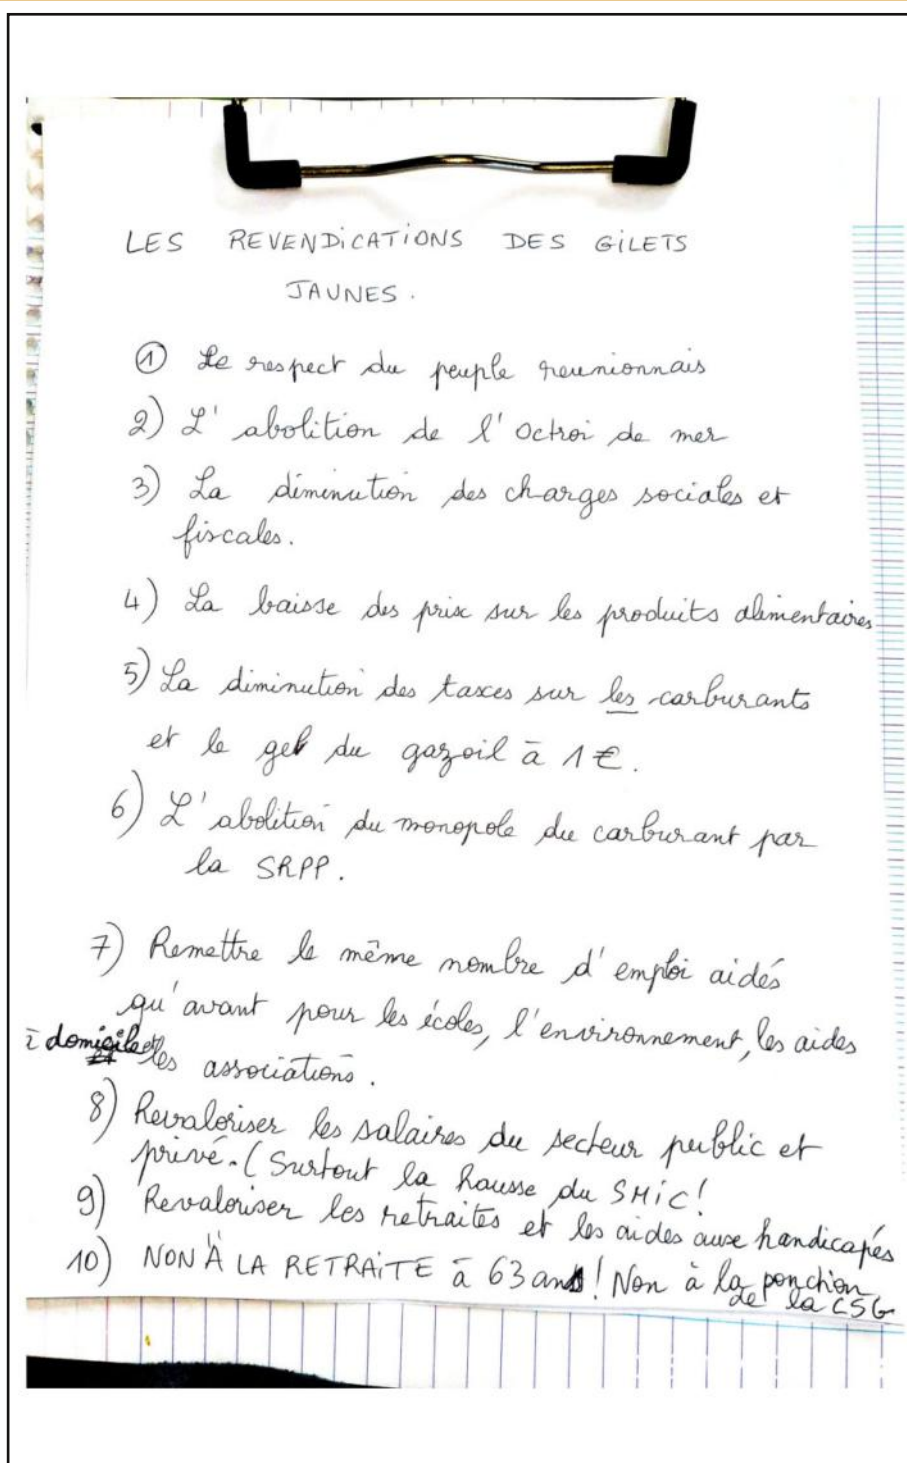 LES REVENDiCATiONS DES GiLETS
JAUNES.
① Le respect du peuple reunionnais
2) L'abolition de l'octroi de mer
3) La diminution des charges sociales et
fiscales.
4) La baisse des prix sur les produits alimentaires
5) La diminution des taxes sur les carburants
et le gel du gazoil à 1€.
6) L'abolition du monopole du carburant par
la SRPP.
7) Remettre le même nombre d'emploi aidés
qu'avant pour les écoles, l'environnement, les aides
à domicile et les associations.
8) Revaloriser les salaires du secteur public et
privé. (Surtout la hausse du SMiC!
9) Revaloriser les retraites et les aides aux handicapés
10) NON À LA RETRAiTE à 63 ans! Non à la ponction
de la CSG